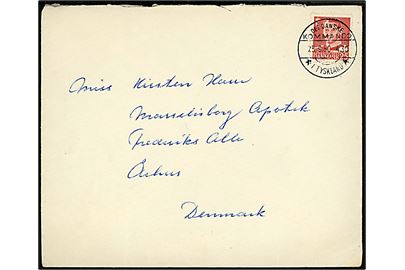 DET DANSKE
KOMMANDO
I TYSKLAND
Miss Kirsten Haur
Marselisborg Apotek
Frederiks Alle
Århus
Denmark